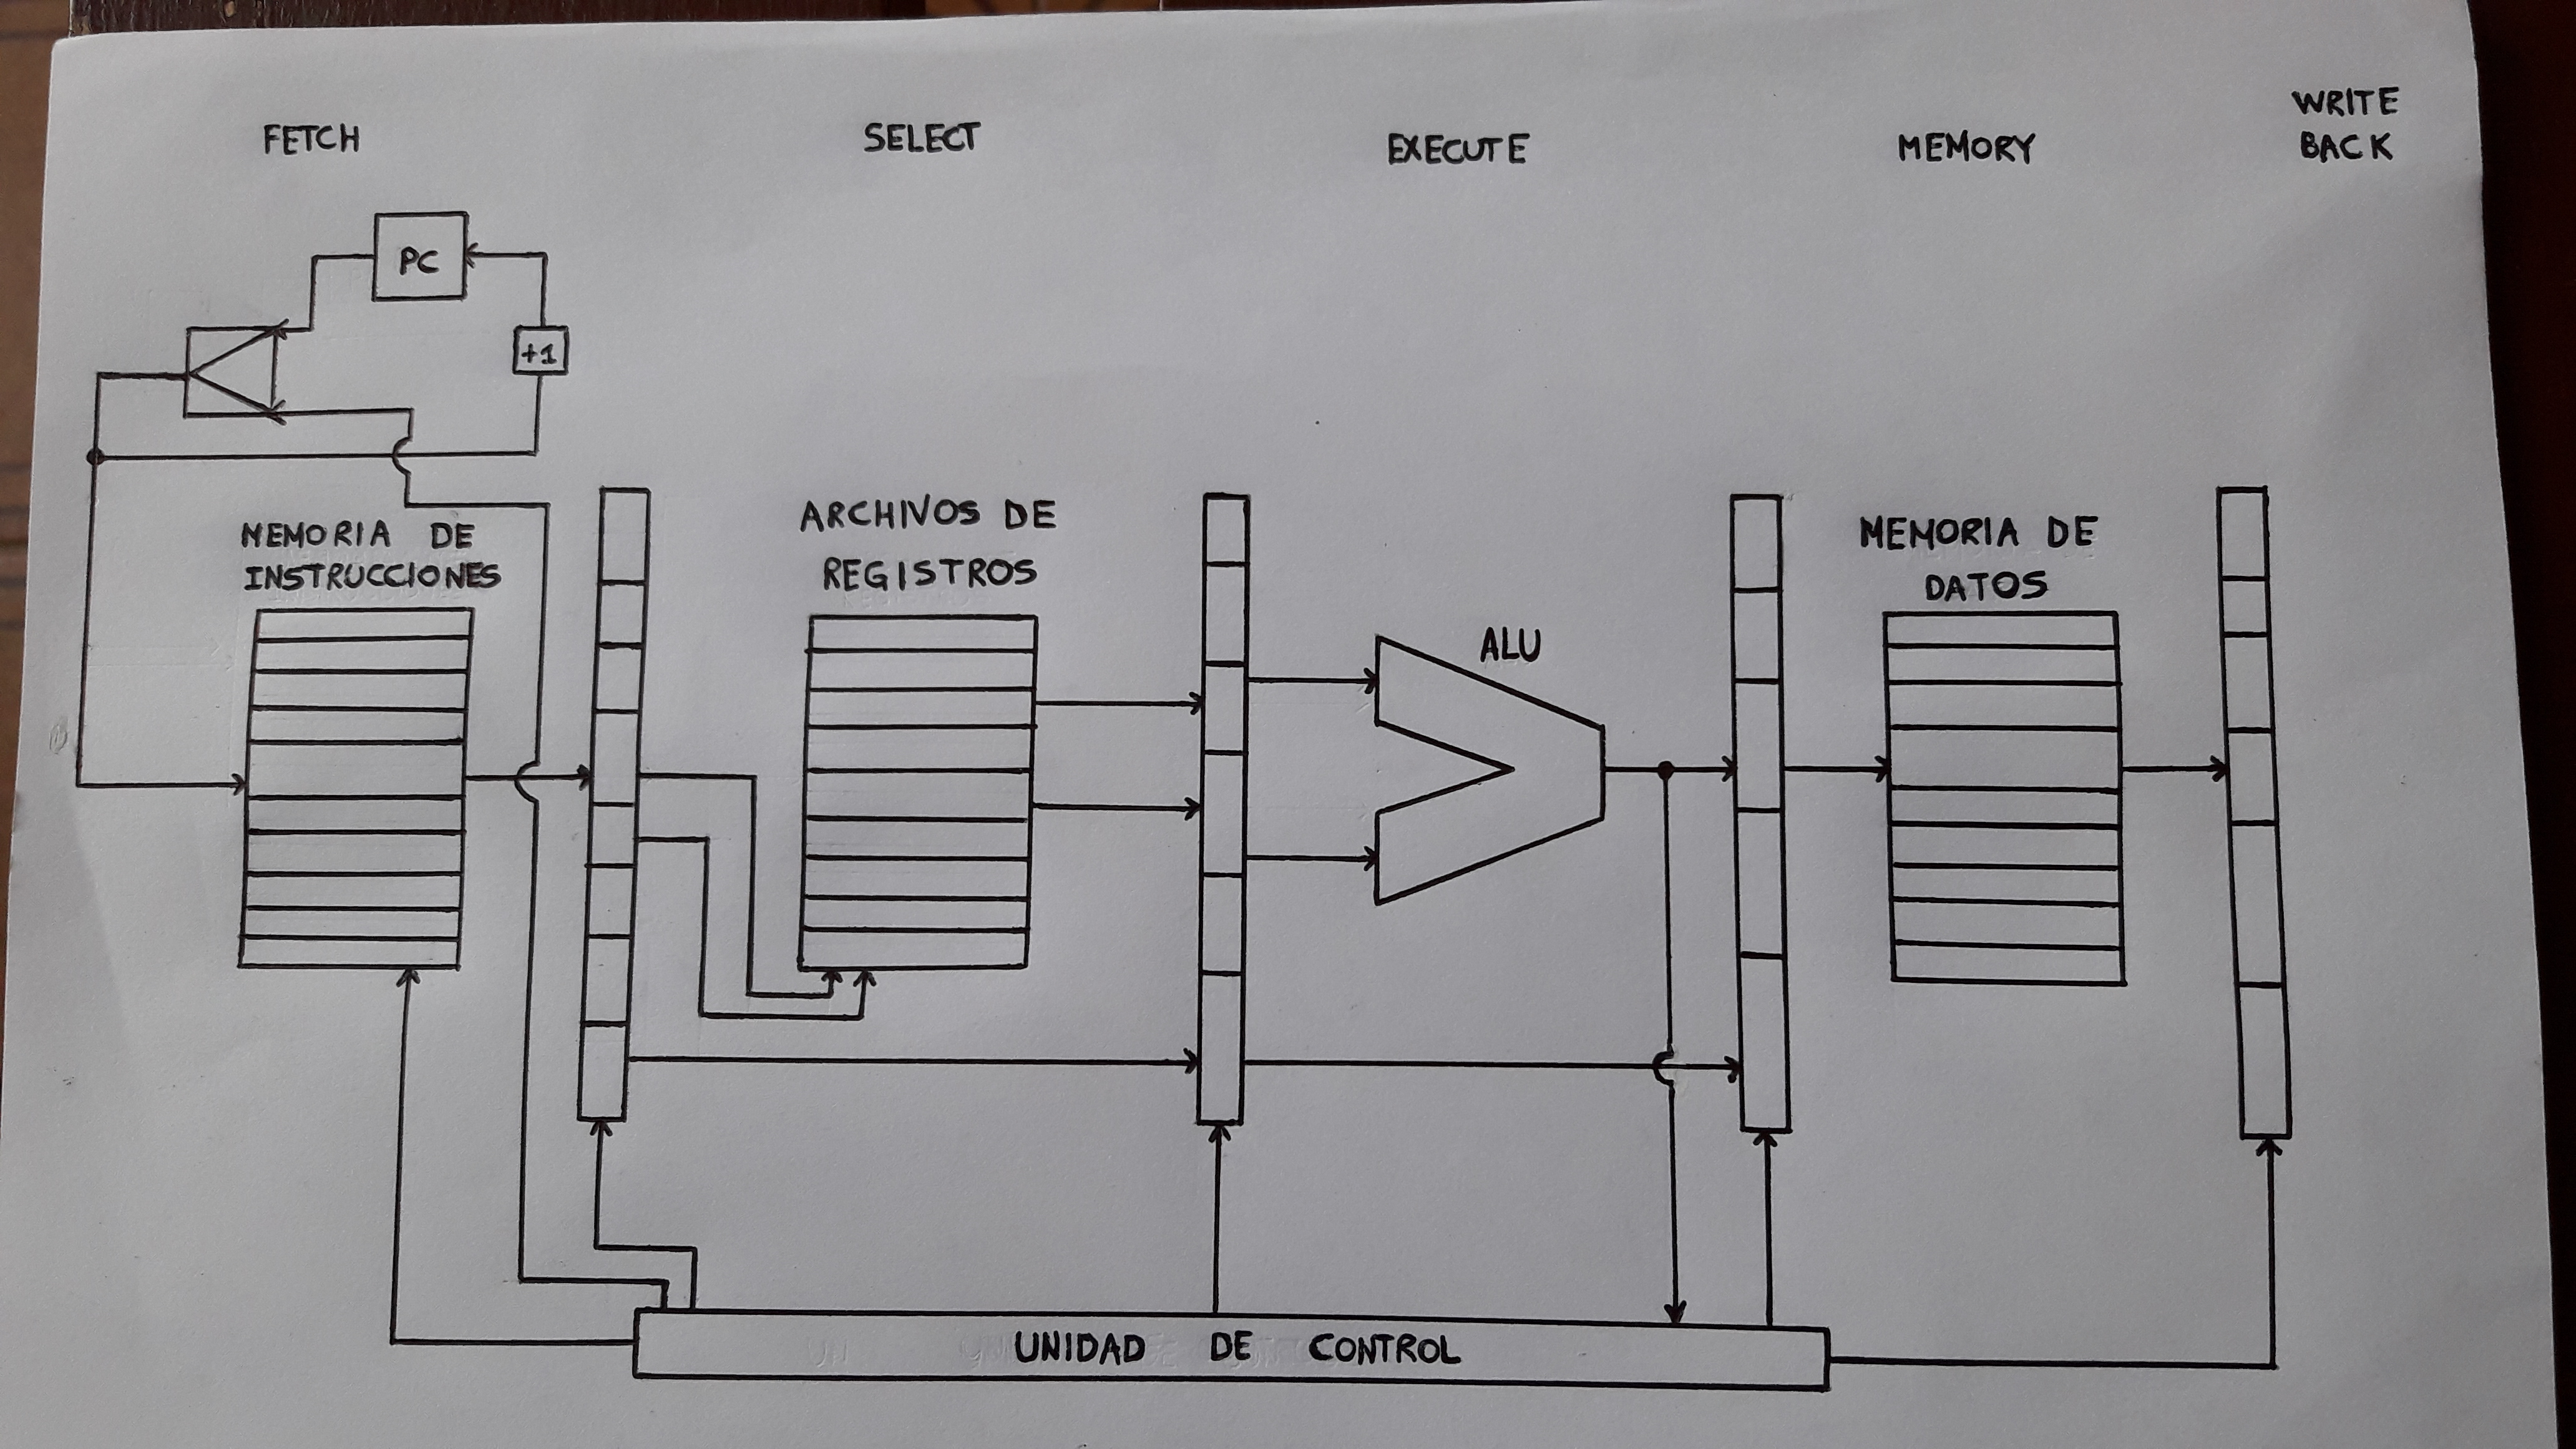 FETCH
SELECT
EXECUTE
MEMORY
WRITE
BACK
PC
+1
MEMORIA DE
INSTRUCCIONES
ARCHIVOS DE
REGISTROS
ALU
MEMORIA DE
DATOS
UNIDAD DE CONTROL